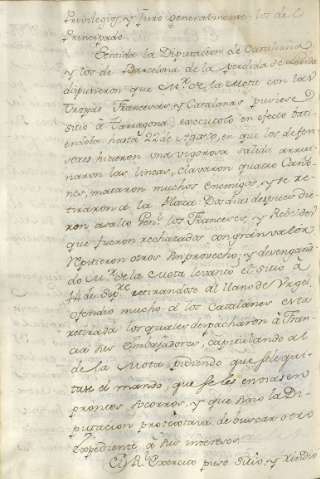 Privilegios, y Juro generalmente los de el
Principado.
Sentida la Diputacion de Cataluña
y los de Barcelona de la perdida de Lerida
dispusieron que Mr. de la Mote con las
Tropas Francesas, y Catalanas pusiese
sitio à Tarragona; executolo en efecto bati
endola hasta 22 de Agosto, en que los defen
sores hicieron una vigorosa salida, arrui
naron las lineas, clavaron quatro Caño
nes, mataron muchos Enemigos, y se re
tiraron à la Plaza. Dos dias despues die
ron asalto los Franceses, y Rebeldes
que fueron rechazados con gran valor
repitieron otros sin provecho, y desengaña
do Mr. de la Mota levantò el sitio à
14 de Sepre. retirandose al llano de Urgel.
ofendio mucho à los Catalanes esta
retirada los quales despacharon à Fran
cia sus Embajadores, capitulando al
de la Mota, pidiendo que se le qui
tase el mando, que se les enviasen
promptos socorros, y que sino la Di
putacion procuraria de buscar otro
expediente à sus intereses.
El Rl. Exercito puso sitio, y rindio